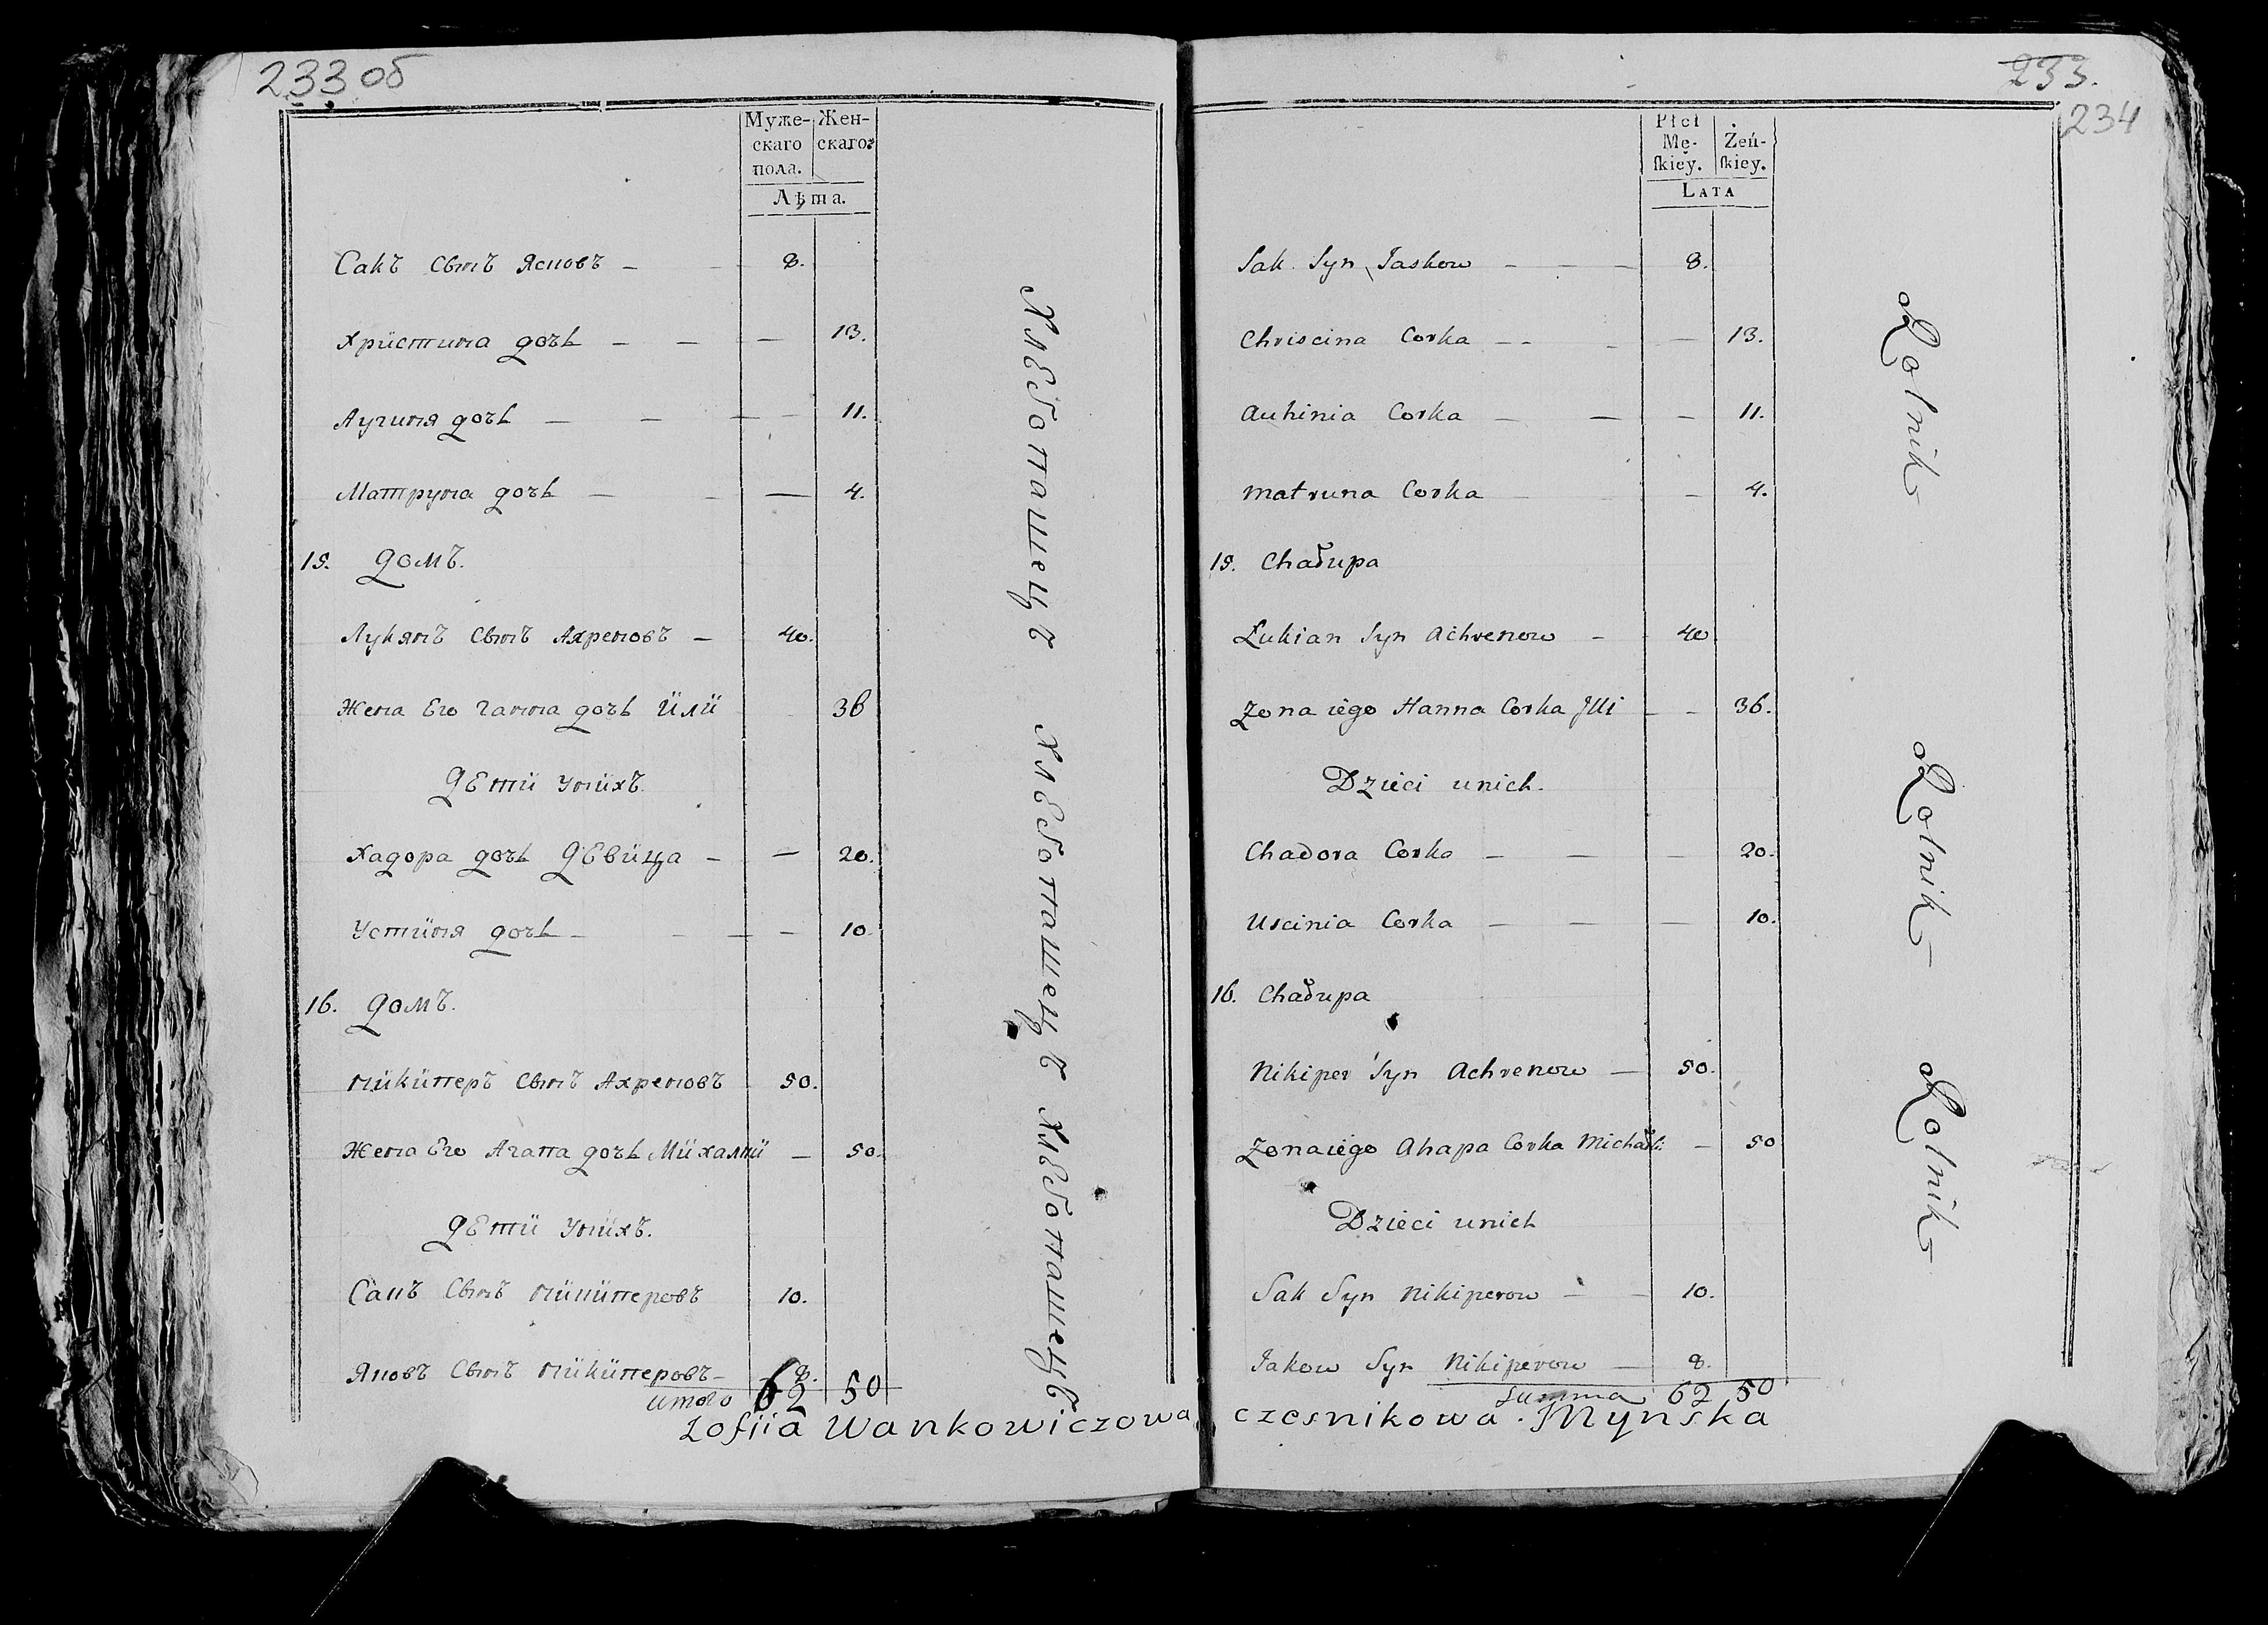 233 об
Муже-
скаго
пола.
Жен-
скаго.
Лѣта.
Сакъ Сынъ Ясковъ — 8.
Христина дочь — 13.
Аугиня дочь — 11.
Матруна дочь — 4.
15. домъ.
Лукянъ Сынъ Ахреновъ — 40.
Жена Его Ганна дочь Или 36
дети уних
Хадора дочь девица — 20.
Устиня дочь — 10.
16. домъ.
Никиперъ Сынъ Ахреновъ 50.
Жена Его Агапа дочь Михалки — 50.
дети унихъ.
Сакъ Сынъ Никиперовъ 10.
Яковъ Сынъ Никиперовъ — 8.
итого 62 50
Хлебопашецъ
Хлебопашецъ
Хлебопашецъ
233.
234
Płci
Mę-
skiey.
Żeń-
skiey.
Lata
Sak Syn Jaskow — 8.
Chriscina Corka — 13.
Auhinia Corka — 11.
Matruna Corka — 4.
15. Chałupa
Łukian Syn Achrenow — 40
Zona iego Hanna Corka Jlli — 36.
Dzieci unich.
Chadora Corka — 20.
Uscinia Corka — 10.
16. Chałupa
Nikiper Syn Achrenow — 50.
Zona iego Ahapa Corka Michałki — 50
Dzieci unich
Sak Syn Nikiperow — 10.
Jakow Syn Nikiperow — 8.
Summa 62 50
Rolnik
Rolnik
Rolnik
Zofiia Wankowiczowa czesnikowa Mynska